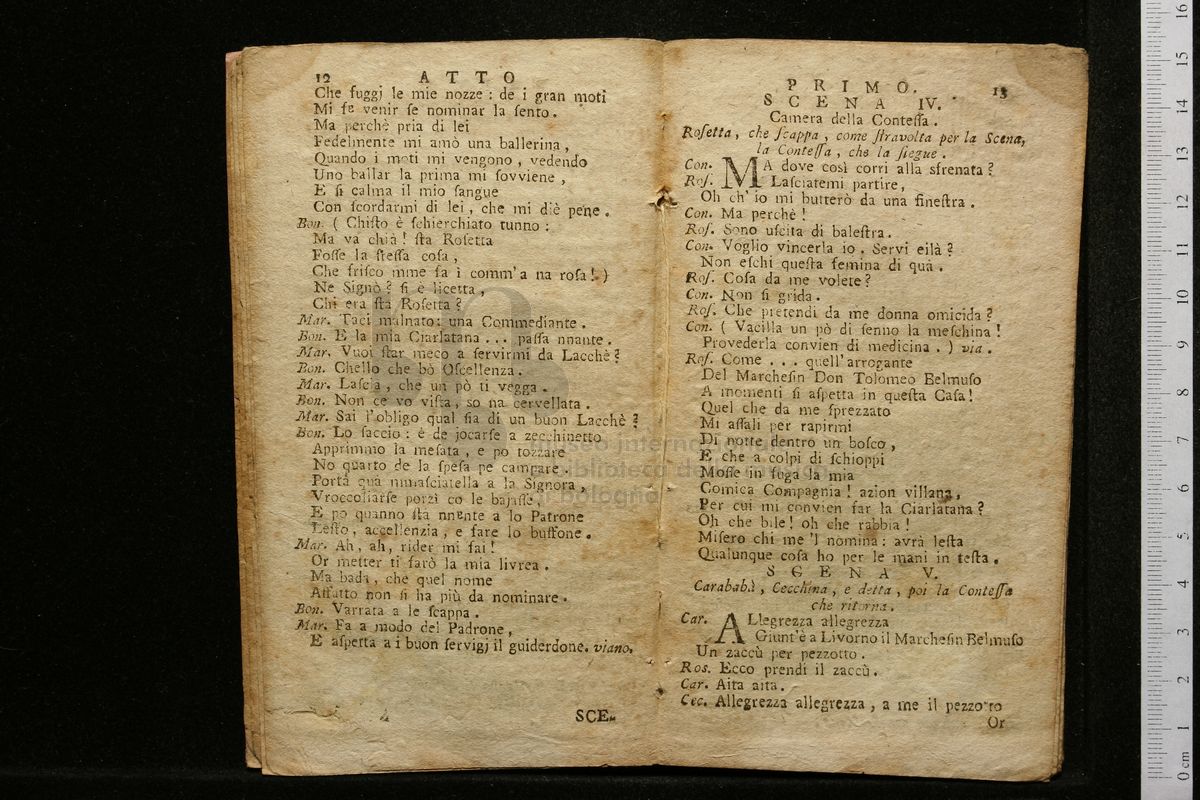 12 ATTO
Che fuggj le mie nozze: de i gran moti
Mi fe venir se nominar la sento.
Ma perchè pria di lei
Fedelmente mi amò una ballerina,
Quando i moti mi vengono, vedendo
Uno ballar la prima mi sovviene,
E si calma il mio sangue
Con scordarmi di lei, che mi diè pene.
Bon. ( Chisto è schierchiato tunno:
Ma va chià! sta Rosetta
Fosse la stessa cosa,
Che frisco mme fa i comm'a na rosa! )
Ne Signò? si è licetta,
Chi era sta Rosetta?
Mar. Taci malnato: una Commediante.
Bon. E la mia Ciarlatana... passa nnante.
Mar. Vuoi star meco a servirmi da Lacchè?
Bon. Chello che bò Oscellenza.
Mar. Lascia, che un pò ti vegga.
Bon. Non ce vo vista, so na cervellata.
Mar. Sai l'obligo qual sia di un buon Lacchè?
Bon. Lo saccio: è de jocarse a zecchinetto
Apprimmo la mesata, e po tozzare
No quarto de la spesa pe campare.
Portà quà mmasciatella a la Signora,
Vroccoliarse porzì co le bajasse,
E po quanno sta nnente a lo Patrone
Lesto, accellenzia, e fare lo buffone.
Mar. Ah, ah, rider mi fai!
Or metter ti farò la mia livrea.
Ma bada, che quel nome
Affatto non si ha più da nominare.
Bon. Varrata a le scappa.
Mar. Fa a modo del Padrone,
E aspetta a i buon servigj il guiderdone. viano.
SCE-
PRIMO. 13
SCENA IV.
Camera della Contessa.
Rosetta, che scappa, come stravolta per la Scena,
la Contessa, che la siegue.
Con. MA dove così corri alla sfrenata?
Ros. Lasciatemi partire,
Oh ch'io mi butterò da una finestra.
Con. Ma perchè!
Ros. Sono uscita di balestra.
Con. Voglio vincerla io. Servi eilà?
Non eschi questa femina di quà.
Ros. Cosa da me volete?
Con. Non si grida.
Ros. Che pretendi da me donna omicida?
Con. ( Vacilla un pò di senno la meschina!
Provederla convien di medicina. ) via.
Ros. Come... quell'arrogante
Del Marchesin Don Tolomeo Belmuso
A momenti si aspetta in questa Casa!
Quel che da me sprezzato
Mi assalì per rapirmi
Di notte dentro un bosco,
E che a colpi di schioppi
Mosse in fuga la mia
Comica Compagnia! azion villana,
Per cui mi convien far la Ciarlatana?
Oh che bile! oh che rabbia!
Misero chi me 'l nomina: avrà lesta
Qualunque cosa ho per le mani in testa.
SCENA V.
Carababà, Cecchina, e detta, poi la Contessa
che ritorna.
Car. ALlegrezza allegrezza
Giunt'è a Livorno il Marchesin Belmuso
Un zaccù per pezzotto.
Ros. Ecco prendi il zaccù.
Car. Aita aita.
Cec. Allegrezza allegrezza, a me il pezzotto
Or